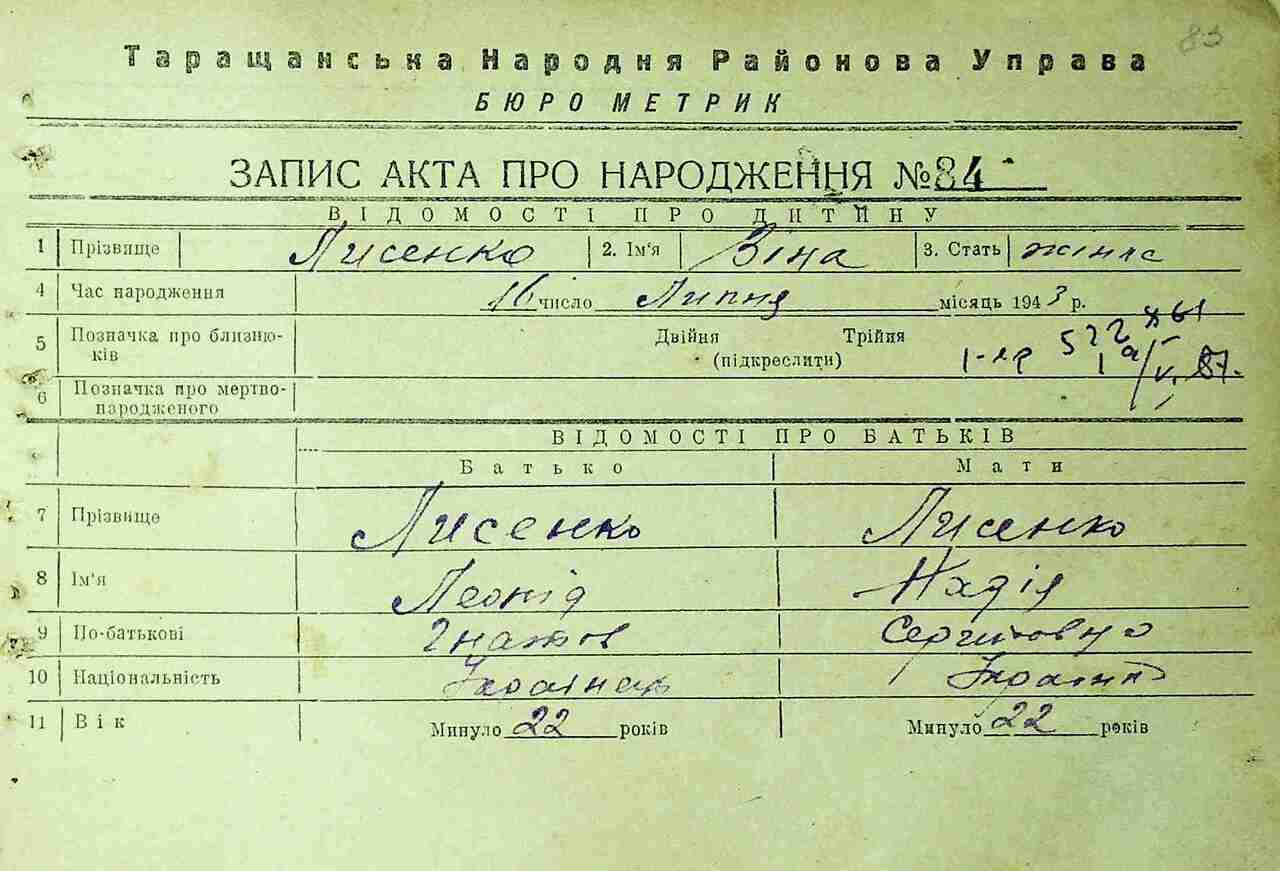 83
Таращанська Народня Районова Управа
БЮРО МЕТРИК
ЗАПИС АКТА ПРО НАРОДЖЕННЯ №84
ВІДОМОСТІ ПРО ДИТИНУ
1 Прізвище Лисенко 2. Ім'я Віна 3. Стать жіноч
4 Час народження 16 число Липня місяць 1943 р.
5 Позначка про близню-ків Двійня Трійня
(підкреслити)
6 Позначка про мертво-народженого
ВІДОМОСТІ ПРО БАТЬКІВ
Батько Мати
7 Прізвище Лисенко Лисенко
8 Ім'я Леонід Надія
9 По-батькові Гнатов Сергіївна
10 Національність Українець Українк
11 Вік Минуло 22 років Минуло 22 років